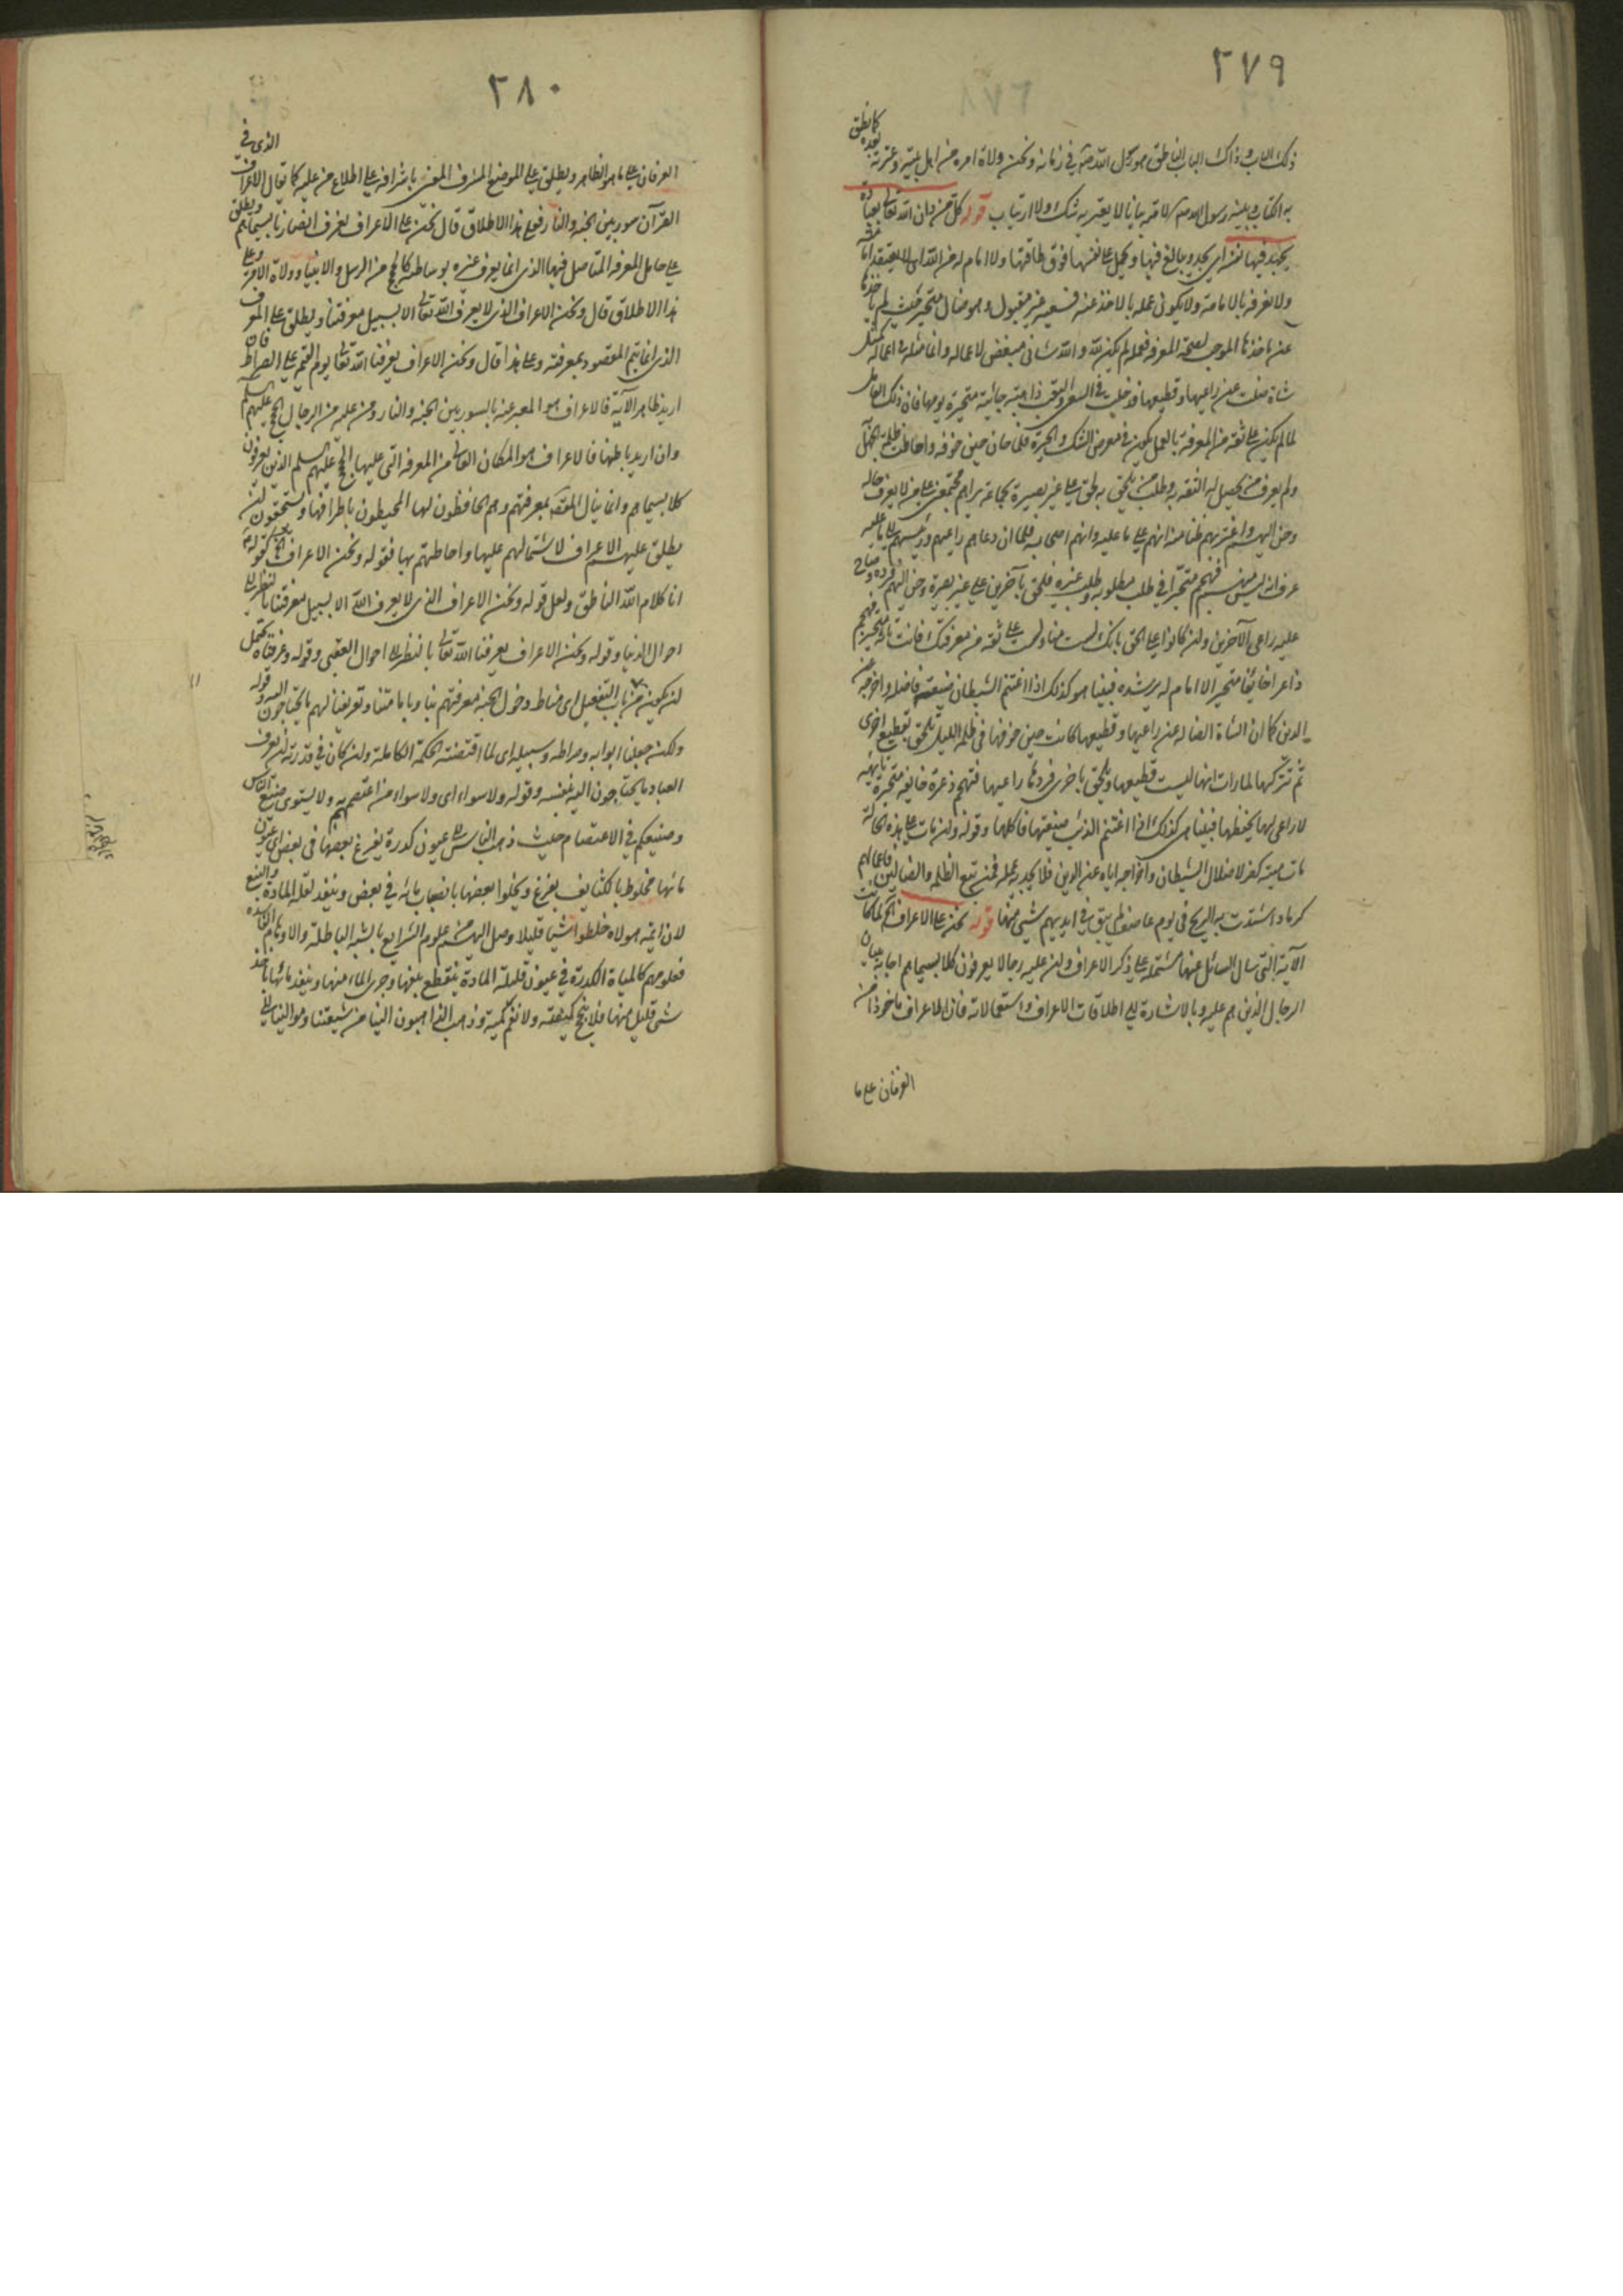 ٢٧٩
ذلك الباب وذاك الباب الناطق هو رسول الله ص في زمانه ونحن ولاة امره من اهل بيته وعترته بعده كما نطق
به الكتاب وبينه رسول الله ص لامته بيانا لا يعتريه شك ولا ارتياب قوله كل من دان الله تعالى بعبادة
يجهد فيها نفسه اي يجد ويبالغ فيها ويحمل على نفسها فوق طاقتها ولا امام له من الله اي لا يعتقد
ولا يعرفه بالامامة ولا يكون عمله بالاخذ عنه فسعيه غير مقبول وهو ضال متحير حيث لم ياخذها
عن ماخذها الموجب لصحة المعرفة فعمله لم يكن لله والله شانئ مبغض لاعماله وانما مثله في اعماله كمثل
شاة ضلت عن راعيها وقطيعها فدخلت في السعي والتعب ذاهبة جائية متحيرة يومها فان ذلك العامل
لما لم يكن على ثقة من المعرفة بالعمل يكون في معرض الشك والحيرة فلما حان حين خوفه واحاطت ظلمة الجهل
ولم يعرف من يحصل له الثقة به وطلب من يلحق به لحق على غير بصيرة بجماعة يراهم مجتمعين على من لا يعرف حاله
وحن اليهم واغتر بهم ظنا منه انهم على ما عليه وانهم اصحابه فلما ان دعاهم راعيهم ورئيسهم الى ما عليه
عرف انه ليس منهم فهجم متحيرا في طلب مطلوبه وطلب غيره فلحق بآخرين على غير بصيرة وحن اليهم فرده وصاح
عليه راعي الآخرين ولن كانوا على الحق بانك لست منا ولست على ثقة من معرفتك فانت تائه متحير فهجم
ذاعرا خائفا متحيرا لا امام له يرشده فبينا هو كذلك اذا اغتنم الشيطان ضيعته فاضله واخرجه عن
الدين كما ان الشاة الضالة عن راعيها وقطيعها كانت حين خوفها في ظلم الليل تلحق بقطيع اخرى
ثم تتركها لما رات انها ليست قطيعها وتلحق باخرى فردها راعيها فتهجم ذعرة خائفة متحيرة تائهة
لا راعي لها يحفظها فبينا هي كذلك اذا اغتنم الذئب ضيعتها فاكلها وقوله ولن مات على هذه الحالة
مات ميتة كفر لاضلال الشيطان واخراجه اياه عن الدين فلا يجديه عمله فمن تبع الظلمة والضالين فاعمالهم
كرماد اشتدت به الريح في يوم عاصف لم يبق في ايديهم شيء منها قوله نحن على الاعراف لما كانت
الآية التي سال السائل عنها مشتملة على ذكر الاعراف ولن عليه رجالا يعرفون كلا بسيماهم اجابه ببيان
الرجال الذين هم عليه وبالاشارة الى اطلاقات الاعراف واستعمالاته فان الاعراف ماخوذا من
العرفان على ما
٢٨٠
العرفان على ما هو الظاهر ويطلق على الموضع المشرف المعين باشرافه على اطلاع من عليه كما يقال الاعراف الذي في
القرآن سور بين الجنة والنار فعلى هذا الاطلاق قال نحن على الاعراف نعرف انصارنا بسيماهم ويطلق
على حامل المعرفة المتاصل فيها الذي انما يعرف غيره بوساطته كالحجج من الرسل والانبياء وولاة الامر وعلى
هذا الاطلاق قال ونحن الاعراف الذي لا يعرف الله تعالى الا بسبيل معرفتنا ويطلق على المعرف
الذي انما يتم المقصود بمعرفته وعلى هذا قال ونحن الاعراف يعرفنا الله تعالى يوم القيمة على الصراط فان
اريد ظاهر الآية فالاعراف هو المعبر عنه بالسور بين الجنة والنار ومن عليه من الرجال الحجج عليهم السلم
وان اريد باطنها فالاعراف هو المكان العالي من المعرفة التي عليها الحجج عليهم السلم الذين يعرفون
كلا بسيماهم وانما ينال المعرفة بمعرفتهم وهم الحافظون لها المحيطون باطرافها ويستحقون لن
يطلق عليهم الاعراف لاشتمالهم عليها واحاطتهم بها فقوله ونحن الاعراف كقوله
انا كلام الله الناطق ولعل قوله ونحن الاعراف الذي لا يعرف الله الا بسبيل معرفتنا بالنظر الى
احوال الدنيا وقوله ونحن الاعراف يعرفنا الله تعالى بالنظر الى احوال العقبى وقوله وعرفناه يحتمل
لن يكون من باب التفعيل اي مناط دخول الجنة معرفتهم بنا وبامامتنا وتعريفنا لهم ما يحتاجون اليه وقوله
ولكن جعلنا ابوابه وصراطه وسبيله اي لما اقتضته الحكمة الكاملة ولن كان في قدرته لن يعرف
العباد ما يحتاجون اليه بنفسه وقوله ولا سواء اي ولا سواء من اعتصم به ولا يستوى صنيع الناس
وصنيعكم في الاعتصام حيث ذهب الناس الى عيون كدرة يفرغ بعضها في بعض اي عيون
مائها مخلوط بالكثايف يفرغ ويخلو بعضها بانصباب مائه في بعض وينفد لقلة المادة والنبع
لان ائمة هولاء خلطوا شيئا قليلا وصل اليهم من علوم الشرايع بالشبه الباطلة والاوهام الفاسدة
فعلومهم كالمياة الكدرة في عيون قليلة المادة ينقطع نبعها وجرى الماء منها وينفد مائها باخذ
شيء قليل منها فلا ينجح كيفيته ولا تغني كميته وذهب الذاهبون الينا من شيعتنا وموالينا الى